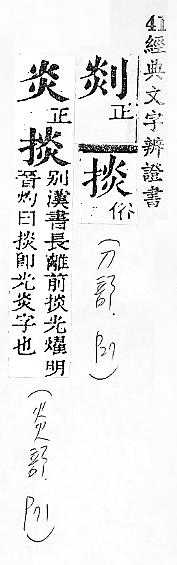 41經典文字辨證書
剡正
掞俗
(刀部. P27)
炎正
掞別漢書長離前掞光燿明
晉灼曰掞即光炎字也
(炎部. P71)